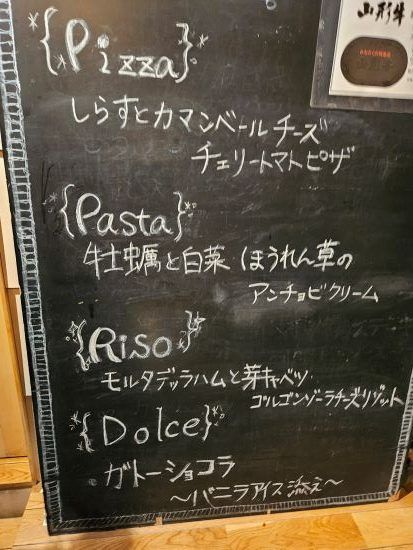 山形牛
{Pizza}
しらすとカマンベールチーズ
チェリートマトピザ
{Pasta}
牡蠣と白菜 ほうれん草の
アンチョビクリーム
{Riso}
モルタデッラハムと芽キャベツ
ゴルゴンゾーラチーズリゾット
{Dolce}
ガトーショコラ
〜バニラアイス添え〜